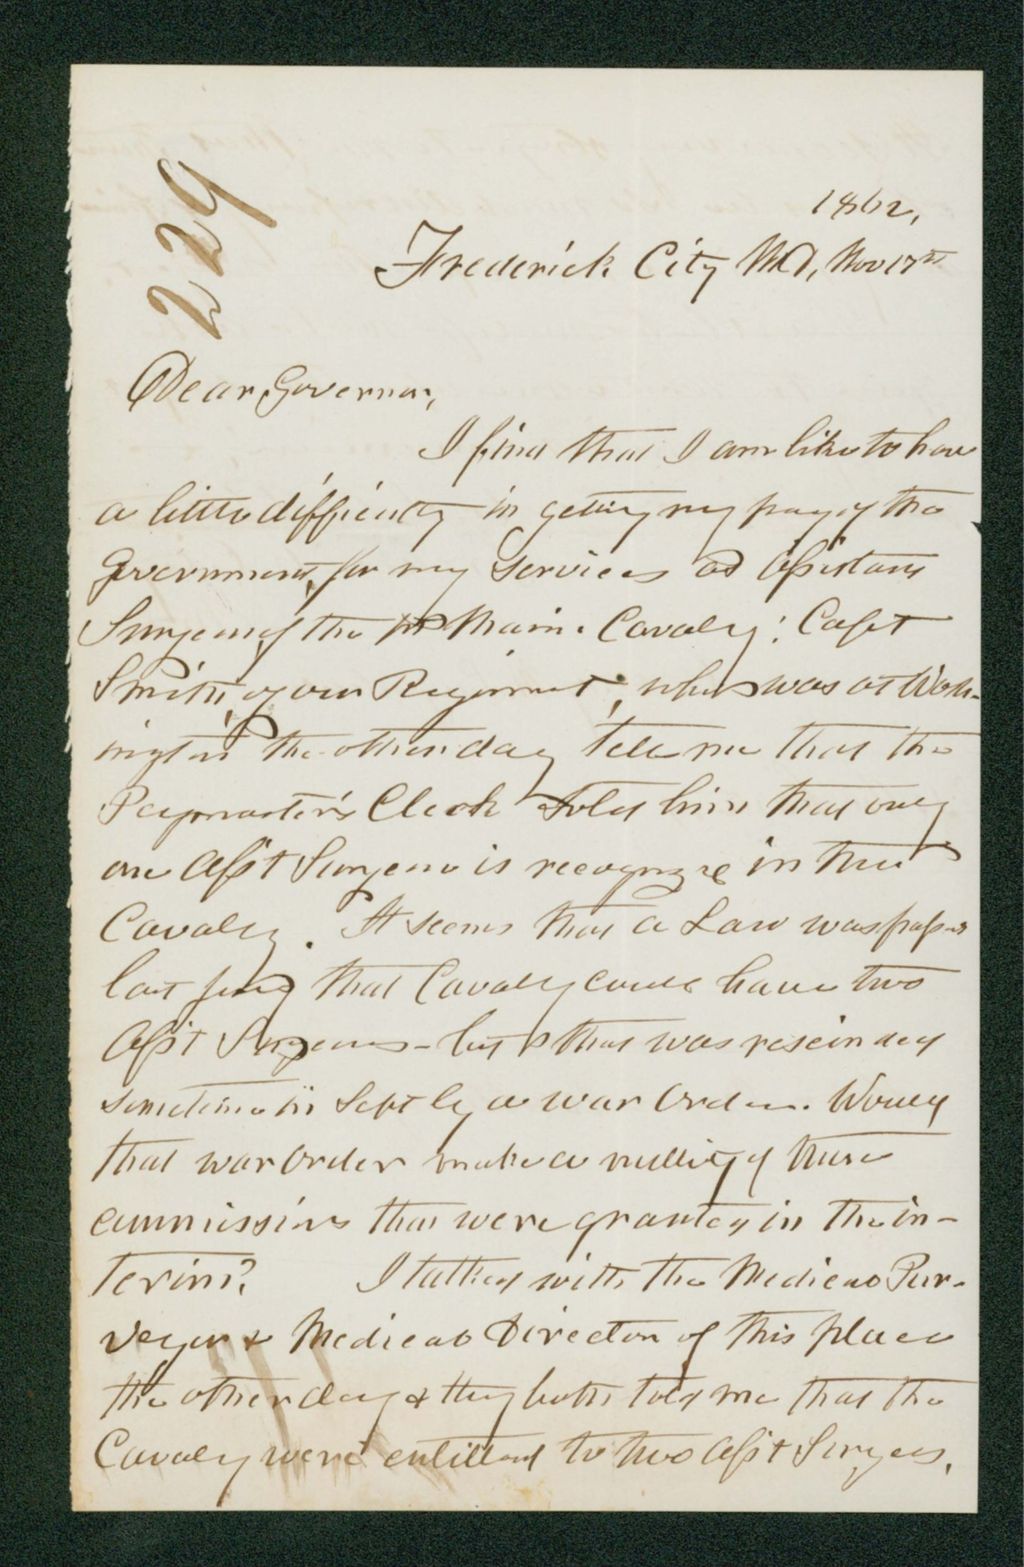 229
1862,
Frederick City Md, Nov 17th
Dear Governor,
I find that I am like to have
a little difficulty in getting my pay of the
Government, for my services as Assistant
Surgeon of the 1st Maine Cavalry. Capt
Smith, of our Regiment, who was at Wash-
ington the other day tells me that the
Paymaster's Clerk told him that only
one Asst Surgeon is recognized in the
Cavalry. It seems that a Law was passed
last July that Cavalry could have two
Asst Surgeons - but that was rescinded
sometime in Sept by a war Order. Would
that war Order make a nullity of those
commissions that were granted in the in-
terim? I talked with the Medical Pur-
veyor & Medical Director of this place
the other day & they both told me that the
Cavalry were entitled to two Asst Surgeons.